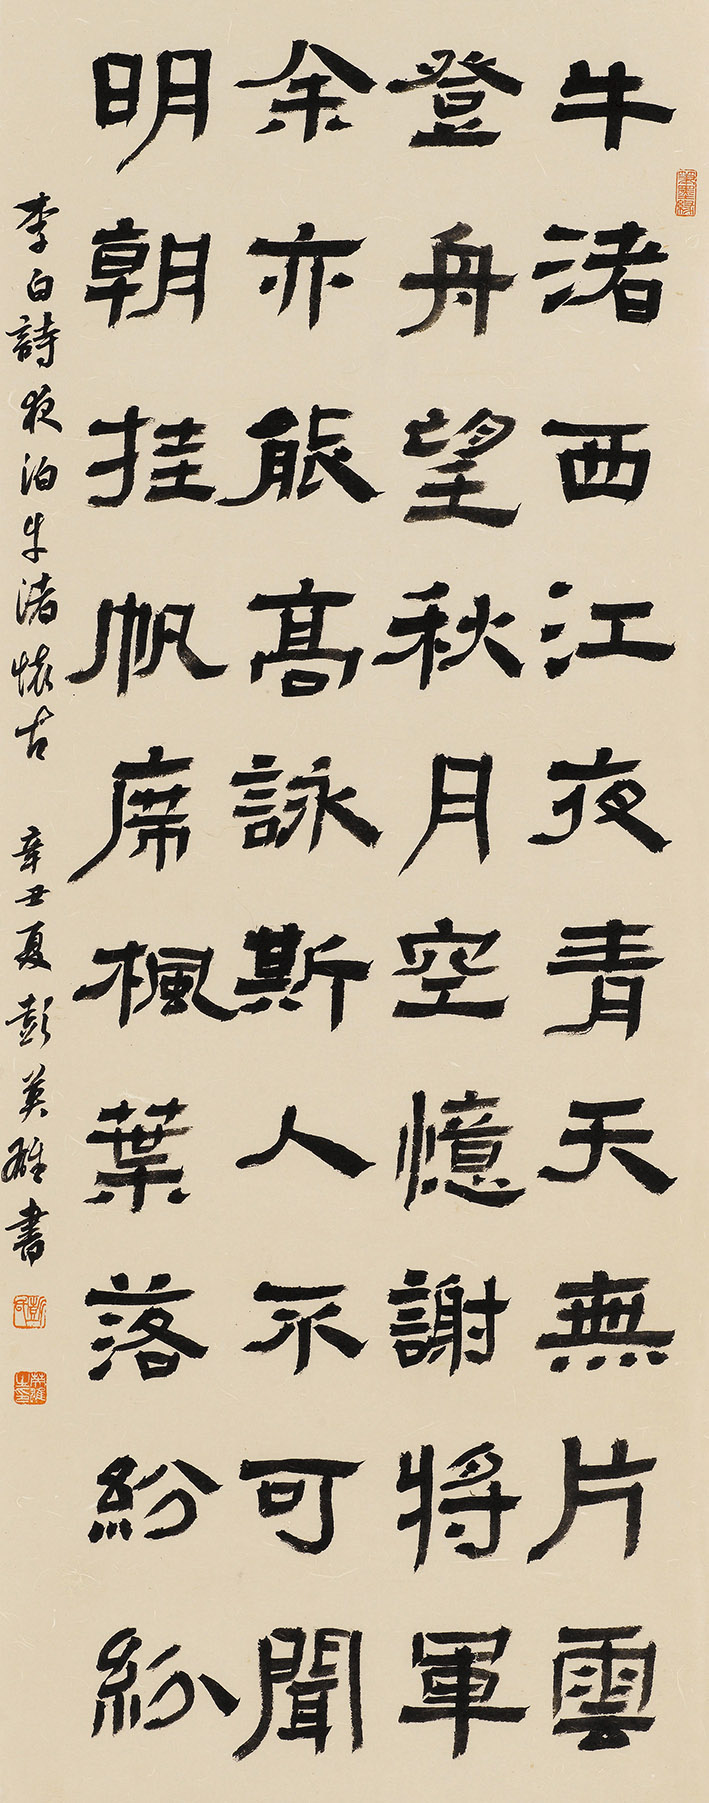 牛渚西江夜青天無片雲
登舟望秋月空憶謝將軍
余亦能高詠斯人不可聞
明朝挂帆席楓葉落紛紛
李白詩夜泊牛渚懷古 辛丑夏 彭英雄書